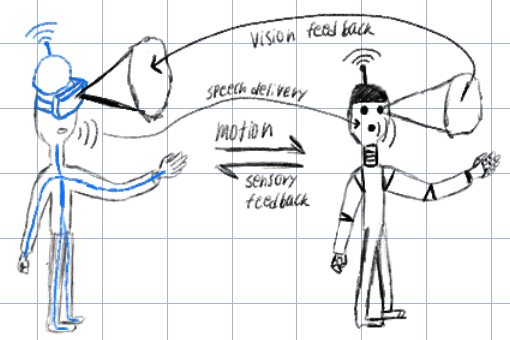 vision feedback
speech delivery
motion
sensory
feedback